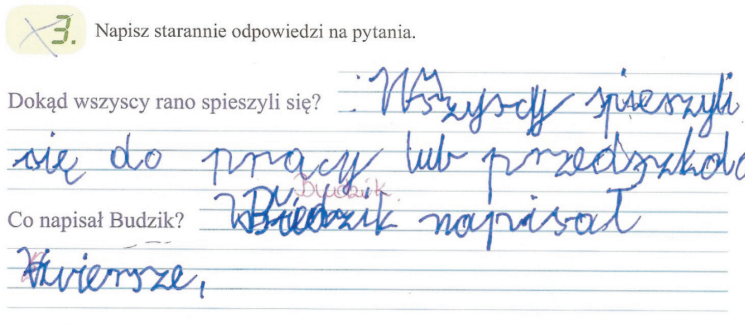 3. Napisz starannie odpowiedzi na pytania.
Dokąd wszyscy rano spieszyli się? Wszyscy spieszyli
się do pracy lub przedszkola
Budzik.
Co napisał Budzik? Budzik napisał
wiersze,